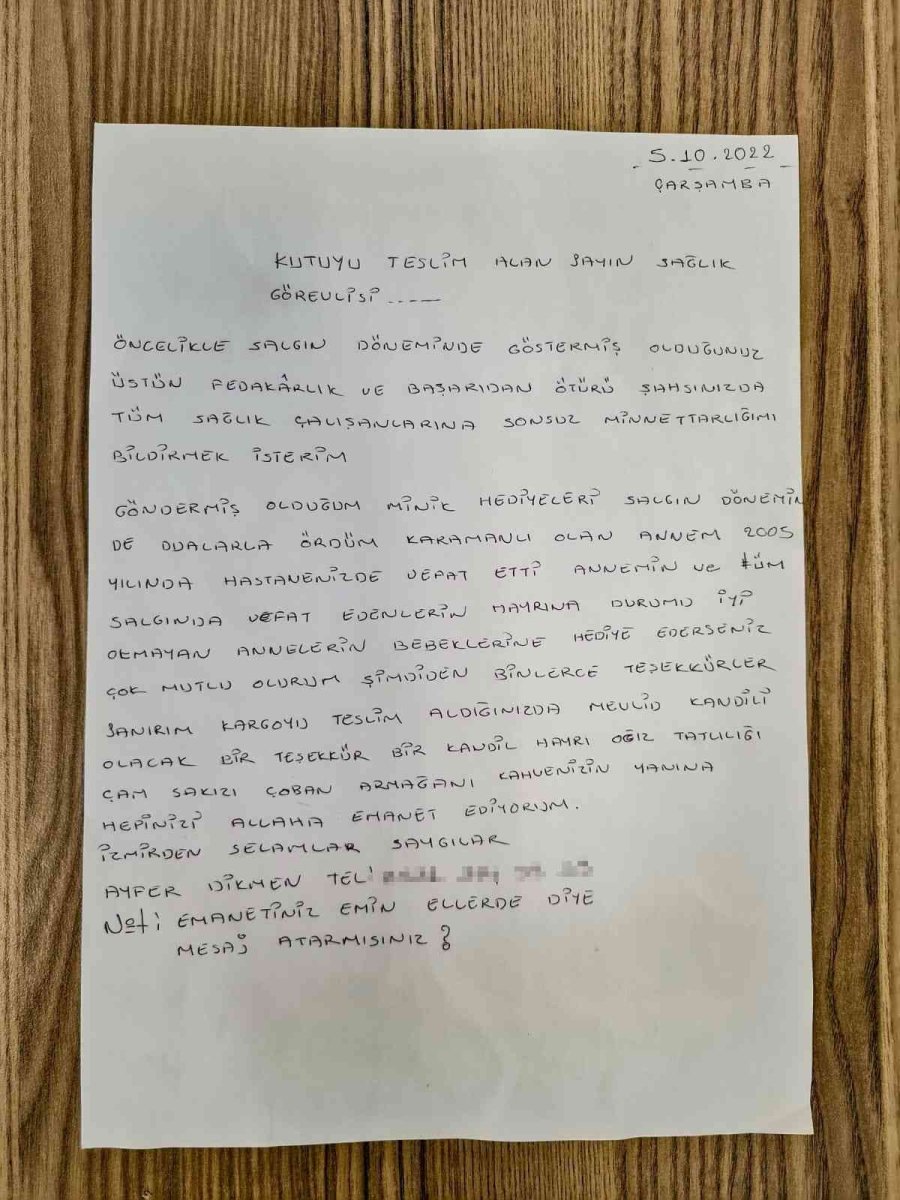 5.10.2022
ÇARŞAMBA
KUTUYU TESLİM ALAN SAYIN SAĞLIK
GÖREVLİSİ .....
ÖNCELİKLE SALGIN DÖNEMİNDE GÖSTERMİŞ OLDUĞUNUZ
ÜSTÜN FEDAKÂRLIK VE BAŞARIDAN ÖTÜRÜ ŞAHSINIZDA
TÜM SAĞLIK ÇALIŞANLARINA SONSUZ MİNNETTARLIĞIMI
BİLDİRMEK İSTERİM
GÖNDERMİŞ OLDUĞUM MİNİK HEDİYELERİ SALGIN DÖNEMİN
DE DUALARLA ÖRDÜM KARAMANLI OLAN ANNEM 2005
YILINDA HASTANENİZDE VEFAT ETTİ ANNEMİN ve tÜM
SALGINDA VEFAT EDENLERİN HAYRINA DURUMU İYİ
OLMAYAN ANNELERİN BEBEKLERİNE HEDİYE EDERSENİZ
ÇOK MUTLU OLURUM ŞİMDİDEN BİNLERCE TEŞEKKÜRLER
SANIRIM KARGOYU TESLİM ALDIĞINIZDA MEVLİD KANDİLİ
OLACAK BİR TEŞEKKÜR BİR KANDİL HAYRI OĞIZ TATLILIĞI
ÇAM SAKIZI ÇOBAN ARMAĞANI KAHVENİZİN YANINA
HEPİNİZİ ALLAHA EMANET EDİYORUM.
İZMİRDEN SELAMLAR SAYGILAR
AYFER DİKMEN TEL:
Not: EMANETİNİZ EMİN ELLERDE DİYE
MESAJ ATARMISINIZ?